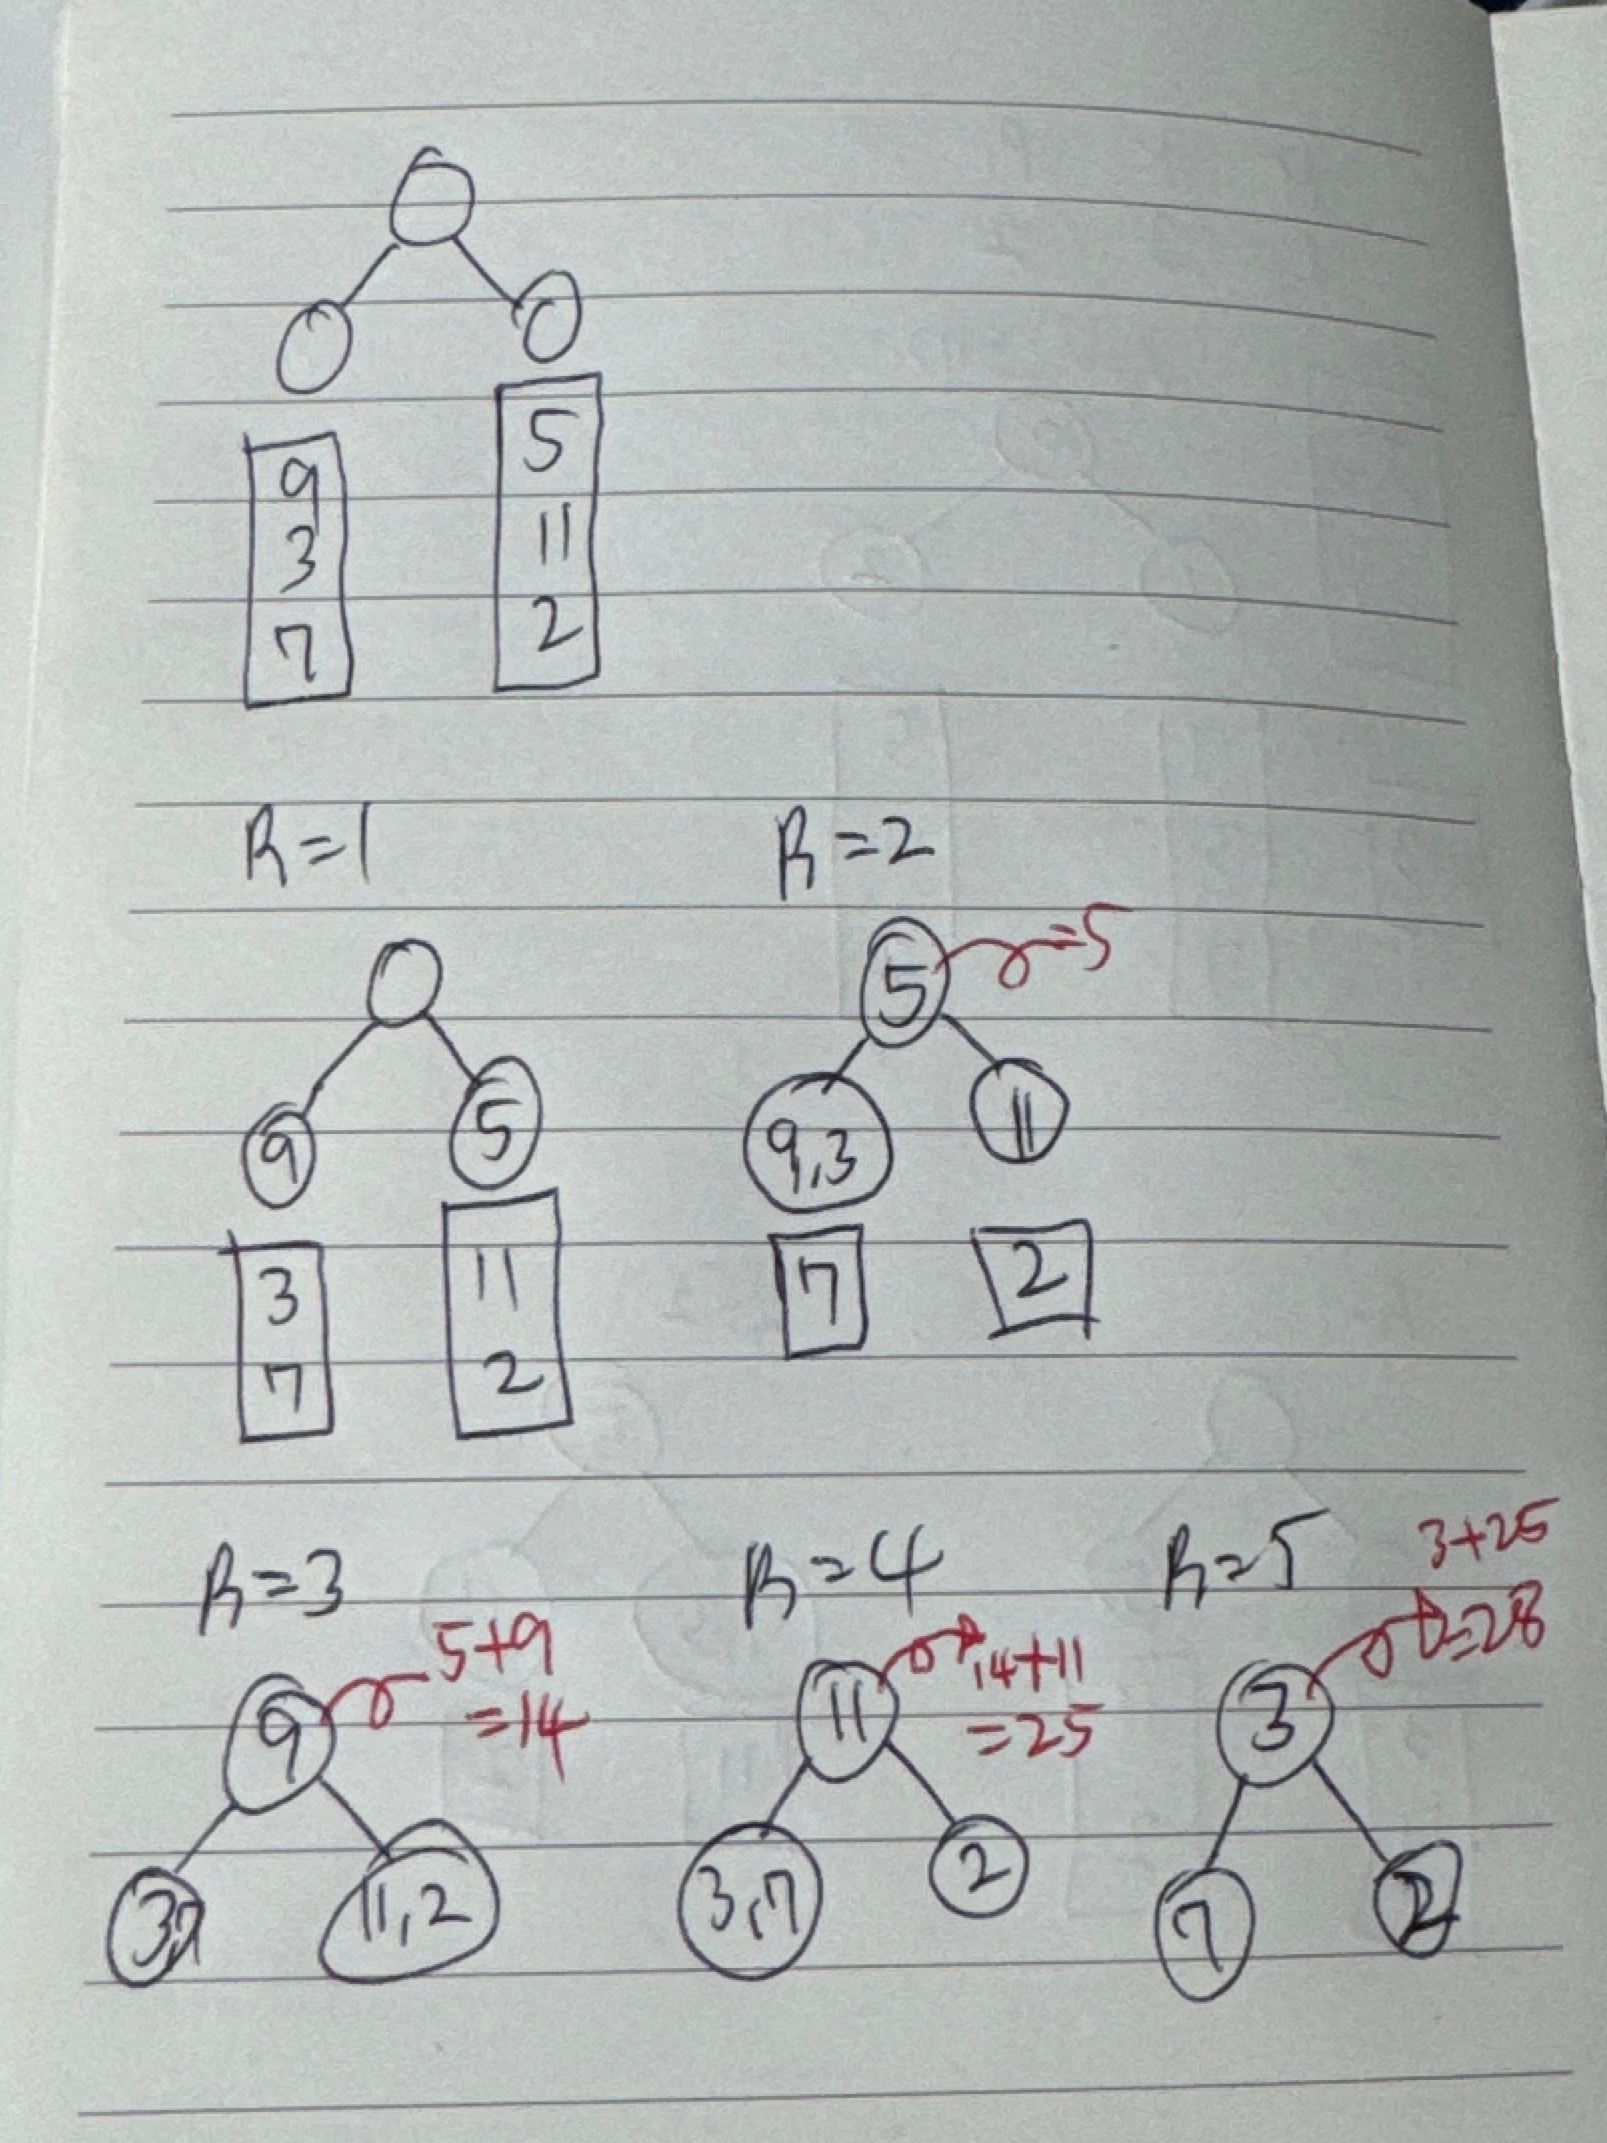 9
3
7
5
11
2
R=1
9
5
3
7
11
2
R=2
5
=5
9,3
11
7
2
R=3
9
5+9
=14
3,7
11,2
R=4
11
14+11
=25
3,7
2
R=5
3+25
=28
3
7
2